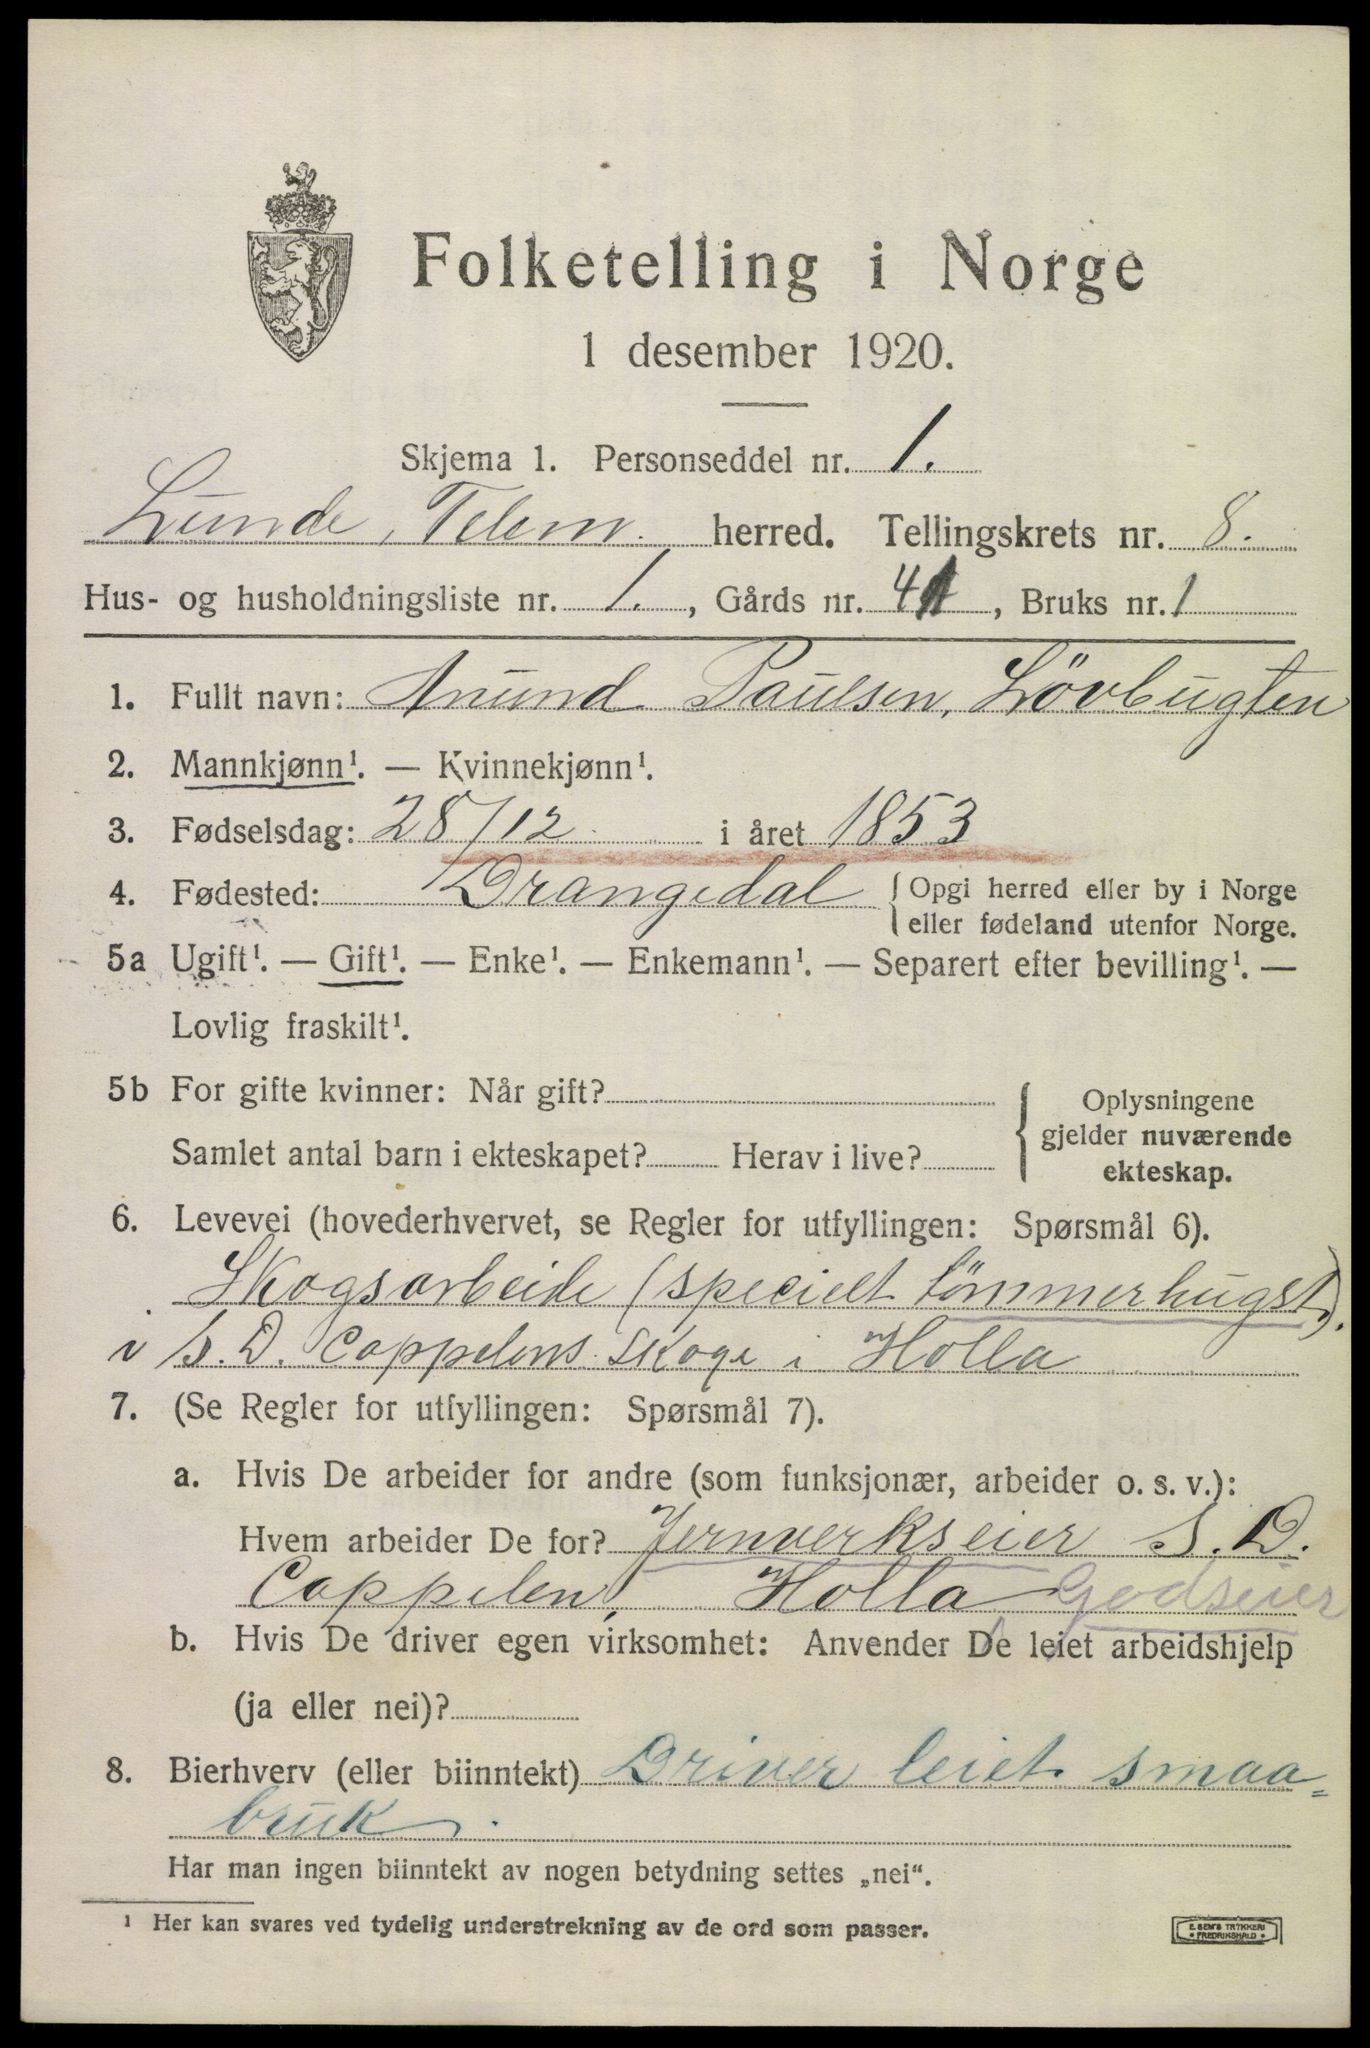 Folketelling i Norge
1 desember 1920.
Skjema 1. Personseddel nr. 1.
Lunde, Telem. herred. Tellingskrets nr. 8.
Hus- og husholdningsliste nr. 1., Gårds nr. 41, Bruks nr. 1
1. Fullt navn: Anund Paulsen, Lövbugten
2. Mannkjønn¹. — Kvinnekjønn¹.
3. Fødselsdag: 28/12 i året 1853
4. Fødested: Drangedal {Opgi herred eller by i Norge
eller fødeland utenfor Norge.
5a Ugift¹. — Gift¹. — Enke¹. — Enkemann¹. — Separert efter bevilling¹. —
Lovlig fraskilt¹.
5b For gifte kvinner: Når gift?
Samlet antal barn i ekteskapet? Herav i live?
{ Oplysningene
gjelder nuværende
ekteskap.
6. Levevei (hovederhvervet, se Regler for utfyllingen: Spørsmål 6).
Skogsarbeide (specielt tömmerhugst).
i S. D. Cappelens skoge i Holla
7. (Se Regler for utfyllingen: Spørsmål 7).
a. Hvis De arbeider for andre (som funksjonær, arbeider o. s. v.):
Hvem arbeider De for? Jernverkseier S. D.
Cappelen, Holla Godseier
b. Hvis De driver egen virksomhet: Anvender De leiet arbeidshjelp
(ja eller nei)?
8. Bierhverv (eller biinntekt) Driver leiet smaa=
bruk.
Har man ingen biinntekt av nogen betydning settes „nei“.
¹ Her kan svares ved tydelig understrekning av de ord som passer.
E. SEM'S TRYKKERI
• FREDRIKSHALD •